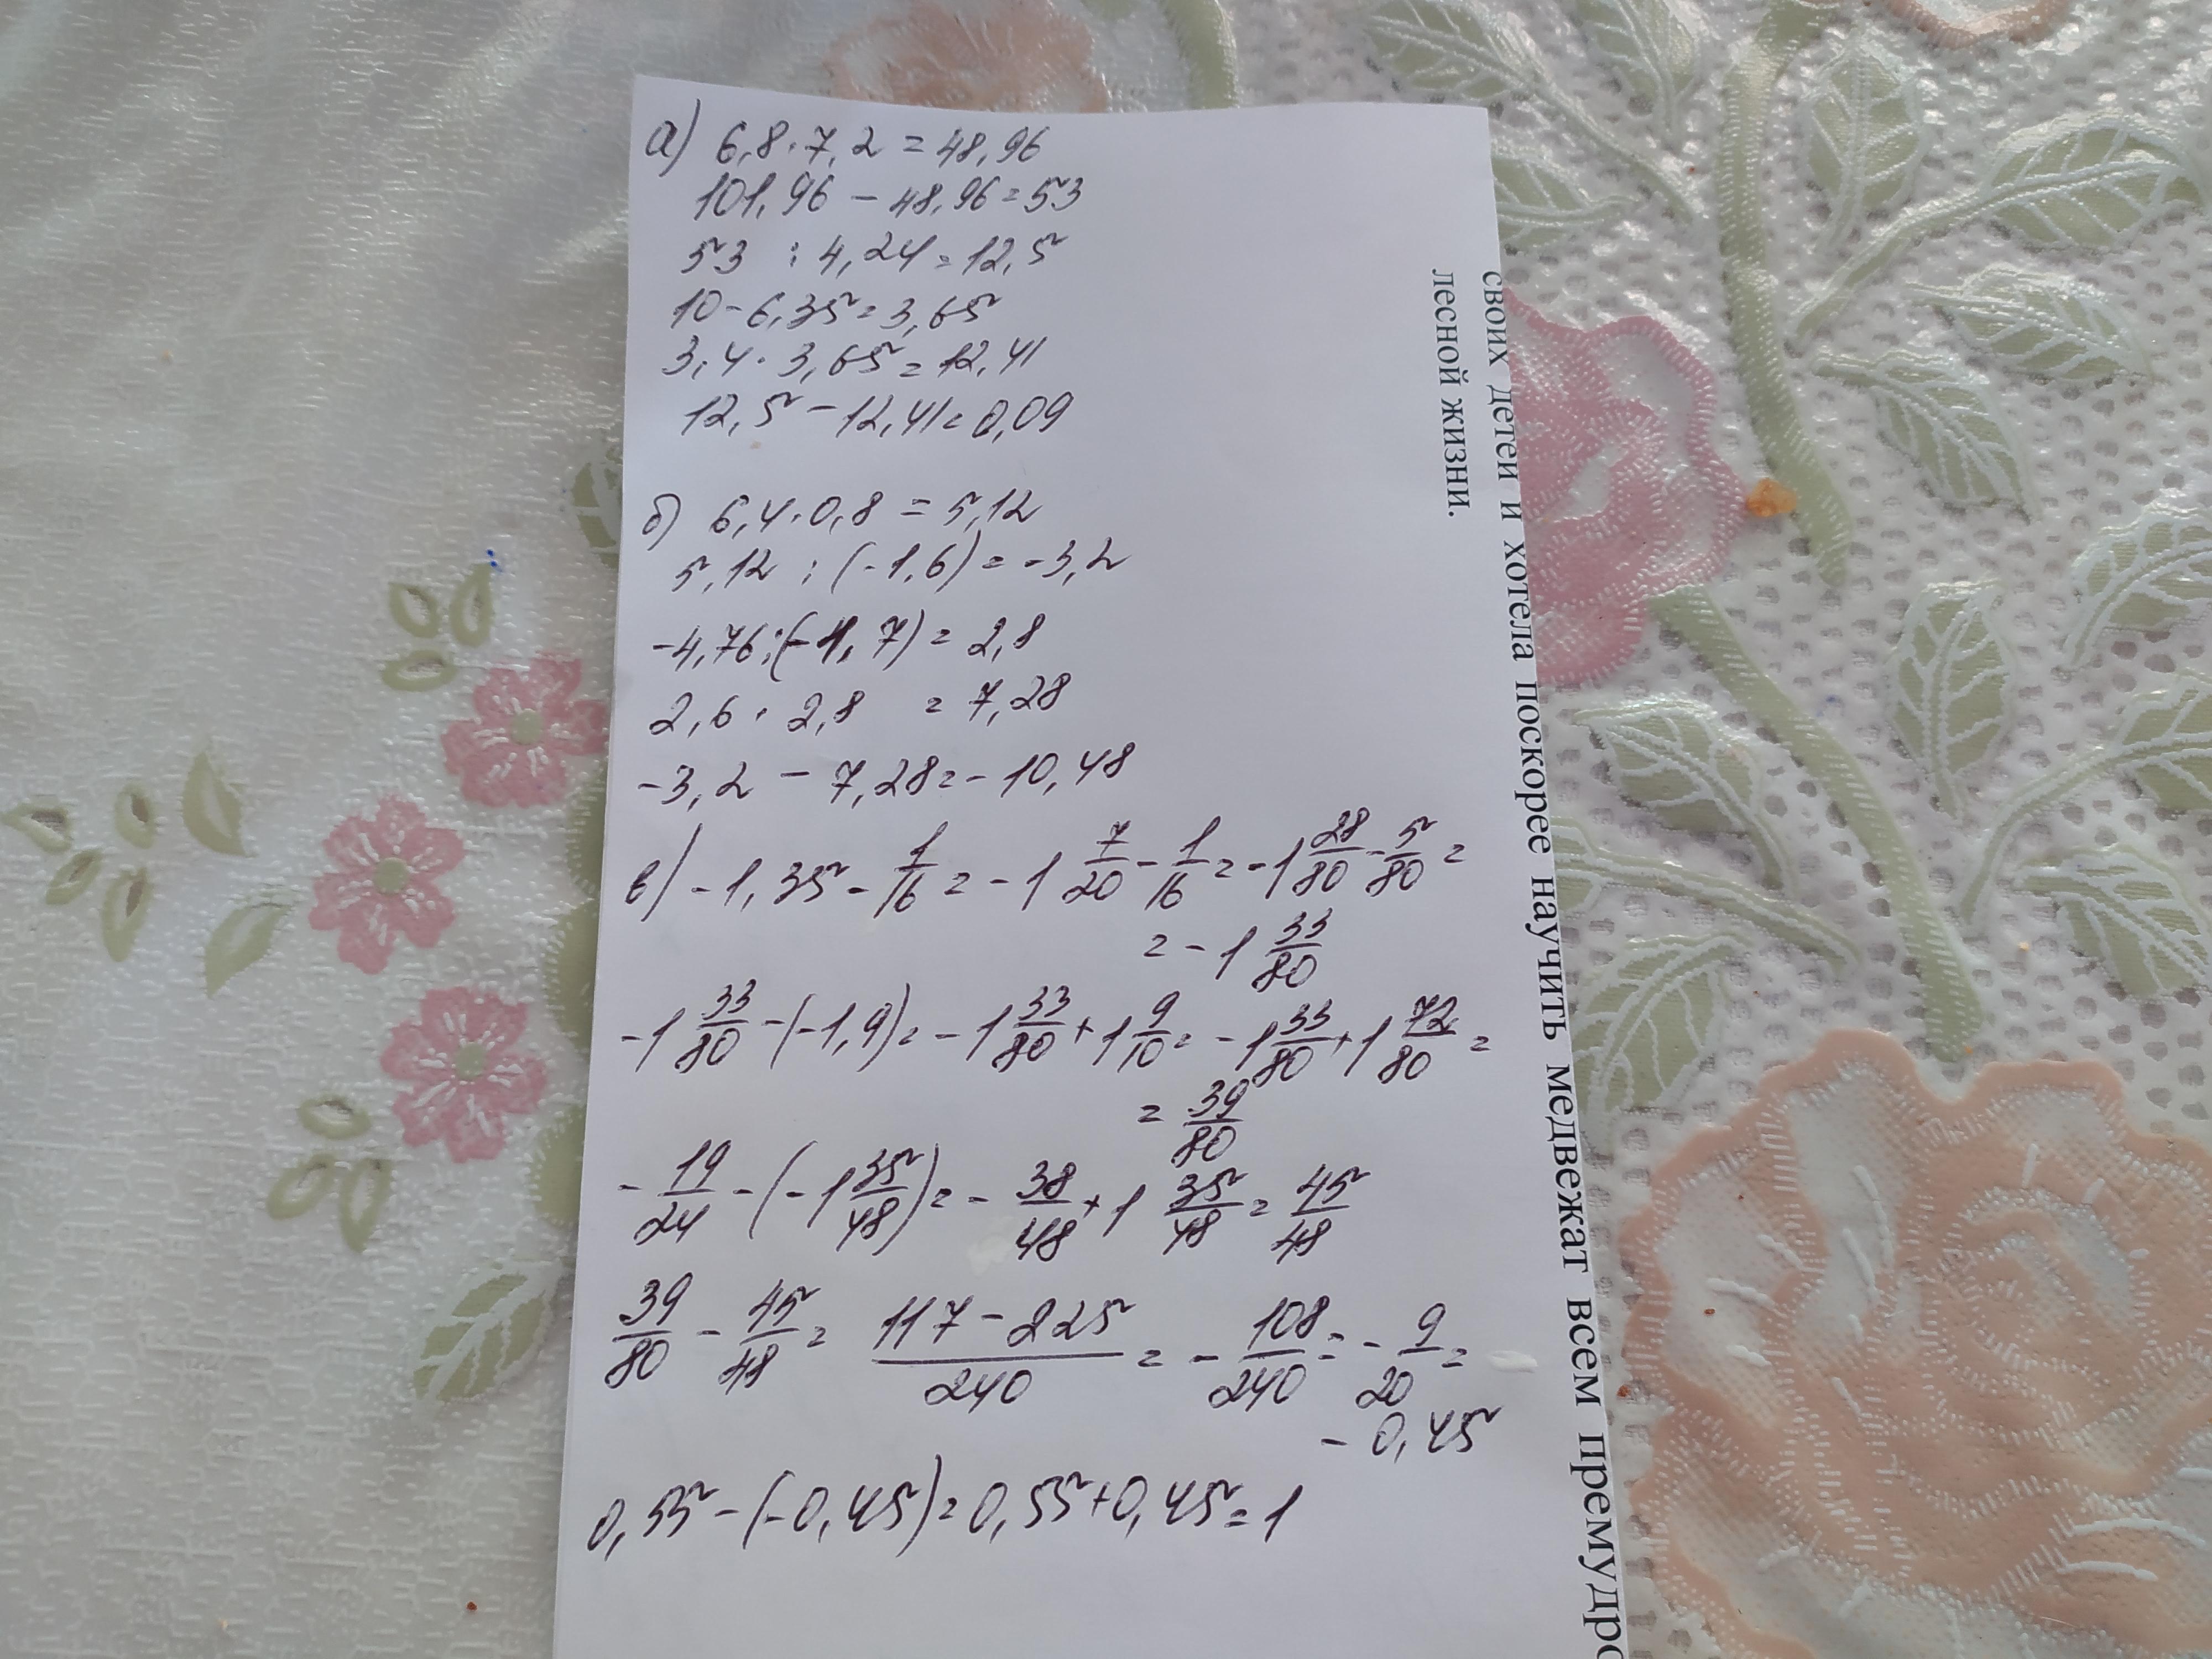 а) 6,8 · 7,2 = 48,96
101,96 - 48,96 = 53
53 : 4,24 = 12,5
10 - 6,35 = 3,65
3,4 · 3,65 = 12,41
12,5 - 12,41 = 0,09
б) 6,4 · 0,8 = 5,12
5,12 : (-1,6) = -3,2
-4,76 : (-1,7) = 2,8
2,6 · 2,8 = 7,28
-3,2 - 7,28 = -10,48
в) -1,35 - 1/16 = -1 7/20 - 1/16 = -1 28/80 - 5/80 =
= -1 33/80
-1 33/80 - (-1,9) = -1 33/80 + 1 9/10 = -1 33/80 + 1 72/80 =
= 39/80
- 19/24 - (-1 35/48) = - 38/48 + 1 35/48 = 45/48
39/80 - 45/48 = (117 - 225)/240 = - 108/240 = - 9/20 =
- 0,45
0,55 - (-0,45) = 0,55 + 0,45 = 1
своих детей и хотела поскорее научить медвежат всем премудро
лесной жизни.